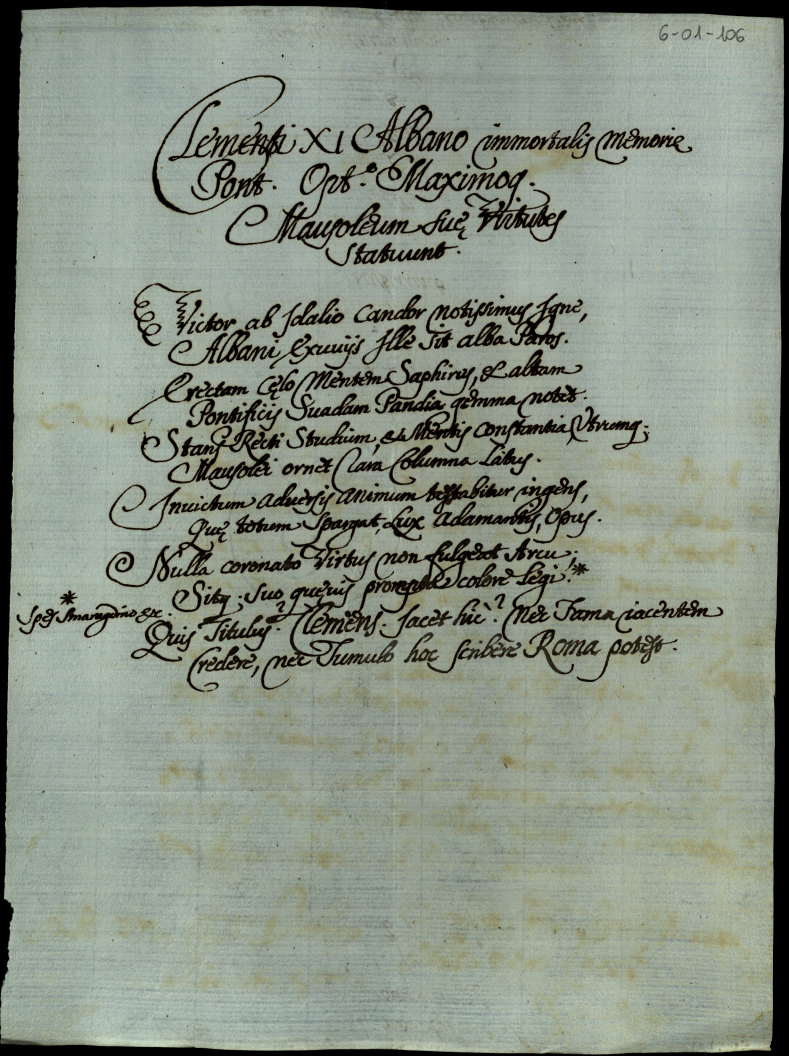 6-01-106
Clementi XI Albano immortalis Memorie
Pont. Opt.º Maximoq.
Mausoleum suę Virtutes
Statuunt.
Victor ab Idalio Candor notissimus Igne,
Albani Exuvijs Ille sit alba Paros.
Erectam Cęlo Mentem Saphirus, et altam
Pontificis Suadam Pandia gemma notet.
Stans Recti Studium, et Mentis Constantia Utrumq;
Mausolei ornet Clara Columna Latus.
Invictum adversis animum testabitur ingens,
Quę totum spargat, Lux Adamantis, Opus.
Nulla coronato Virtus non fulgeat Arcu;
Sitq; suo quęvis prompta colore Legi!*
* Spes Smaragdino etc.
Quis Titulus? Clemens. Jacet hic? Nec Fama iacentem
Credere, nec Tumulo hoc scribere Roma potest.